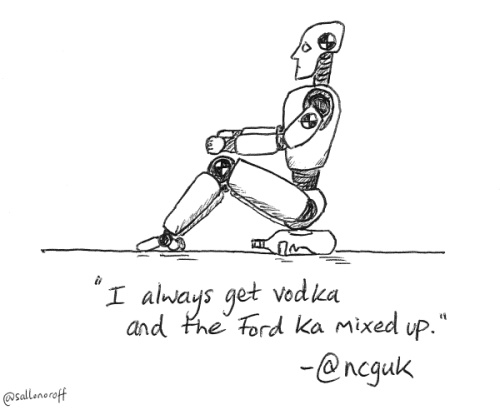 "I always get vodka
and the Ford Ka mixed up."
-@ncguk
@sallonoroff